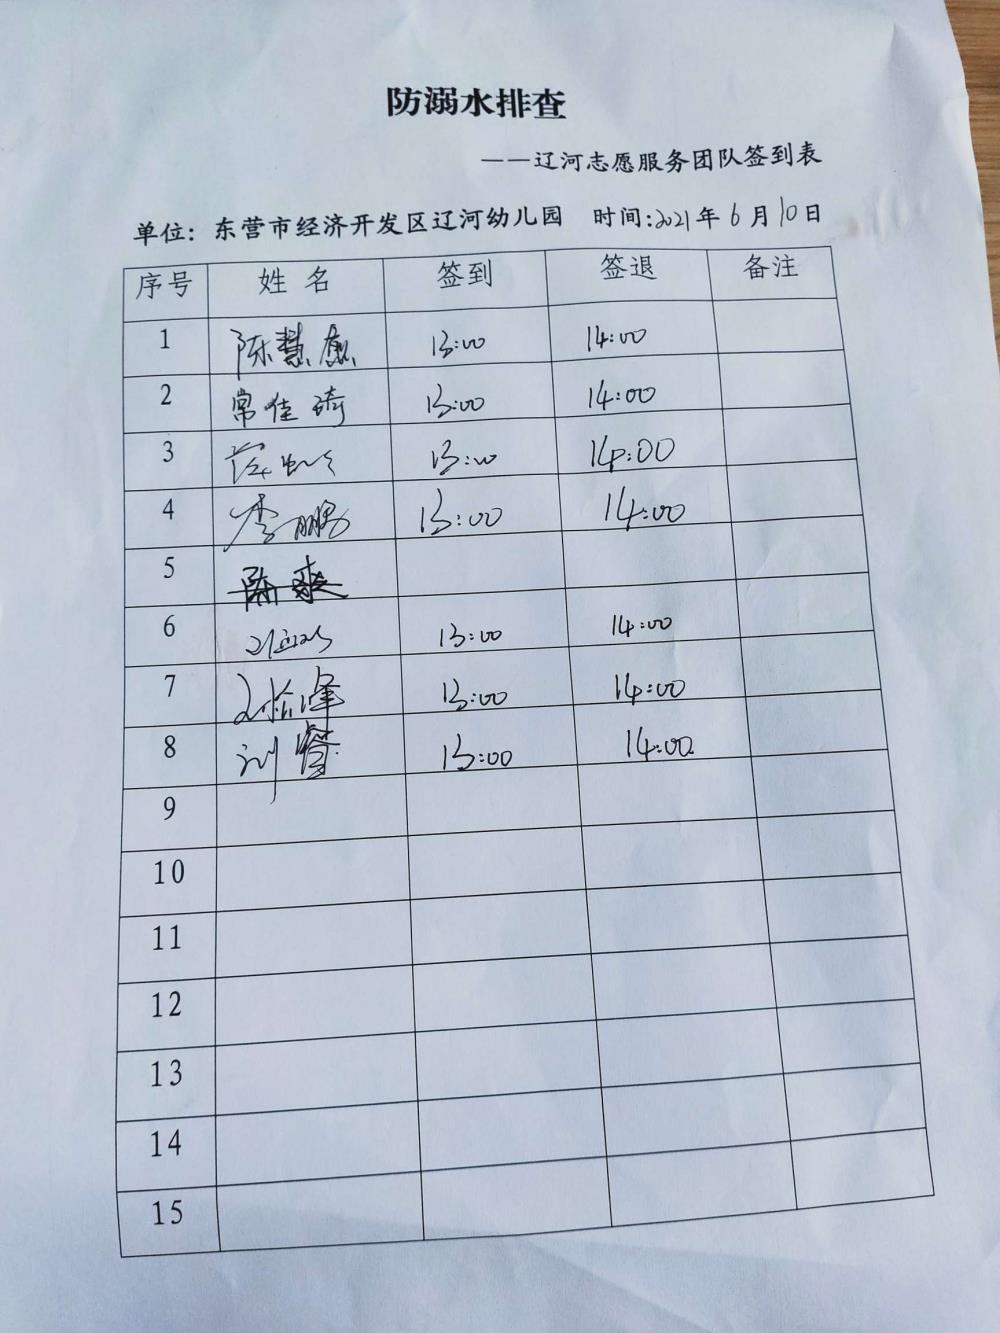 防溺水排查
——辽河志愿服务团队签到表
单位：东营市经济开发区辽河幼儿园 时间:2021年6月10日
序号 姓名 签到 签退 备注
1 陈慧 13:00 14:00
2 常佳琦 13:00 14:00
3 13:00 14:00
4 李鹏 13:00 14:00
5 陈爽
6 13:00 14:00
7 13:00 14:00
8 刘睿 13:00 14:00
9
10
11
12
13
14
15